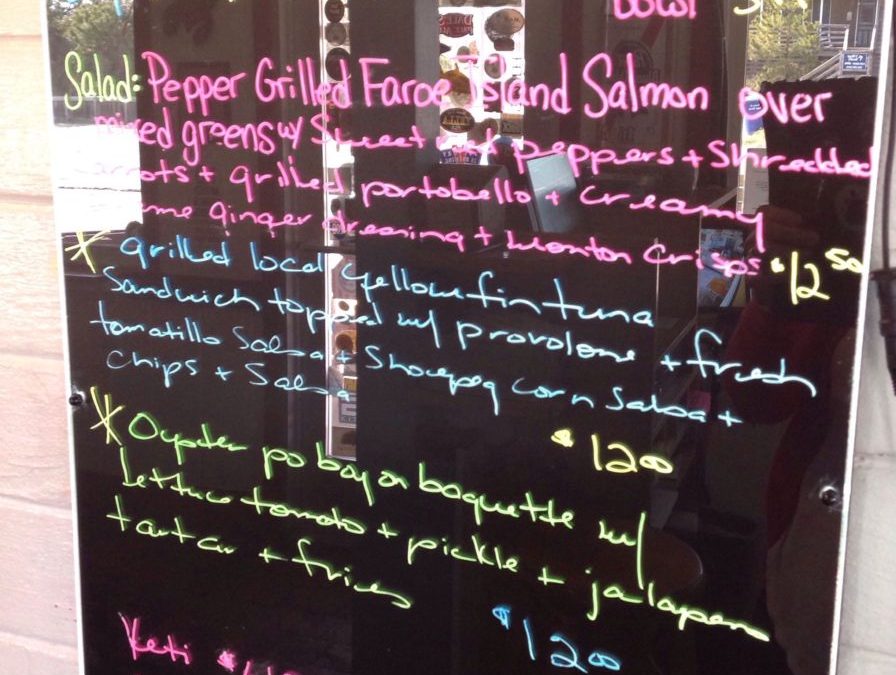 bowl
Salad: Pepper Grilled Faroe Island Salmon over
mixed greens w/ Sweet red peppers + Shredded
carrots + grilled portobello + creamy
ginger dressing + wonton crisps $12 50
* grilled local yellowfin tuna
Sandwich topped w/ provolone + fresh
tomatillo Salsa + Shoepeg corn Salsa +
chips + Salsa
$1200
* Oyster po boy on baguette w/
lettuce tomato + pickle + jalapeno
tartar + fries
$1200
Keti $